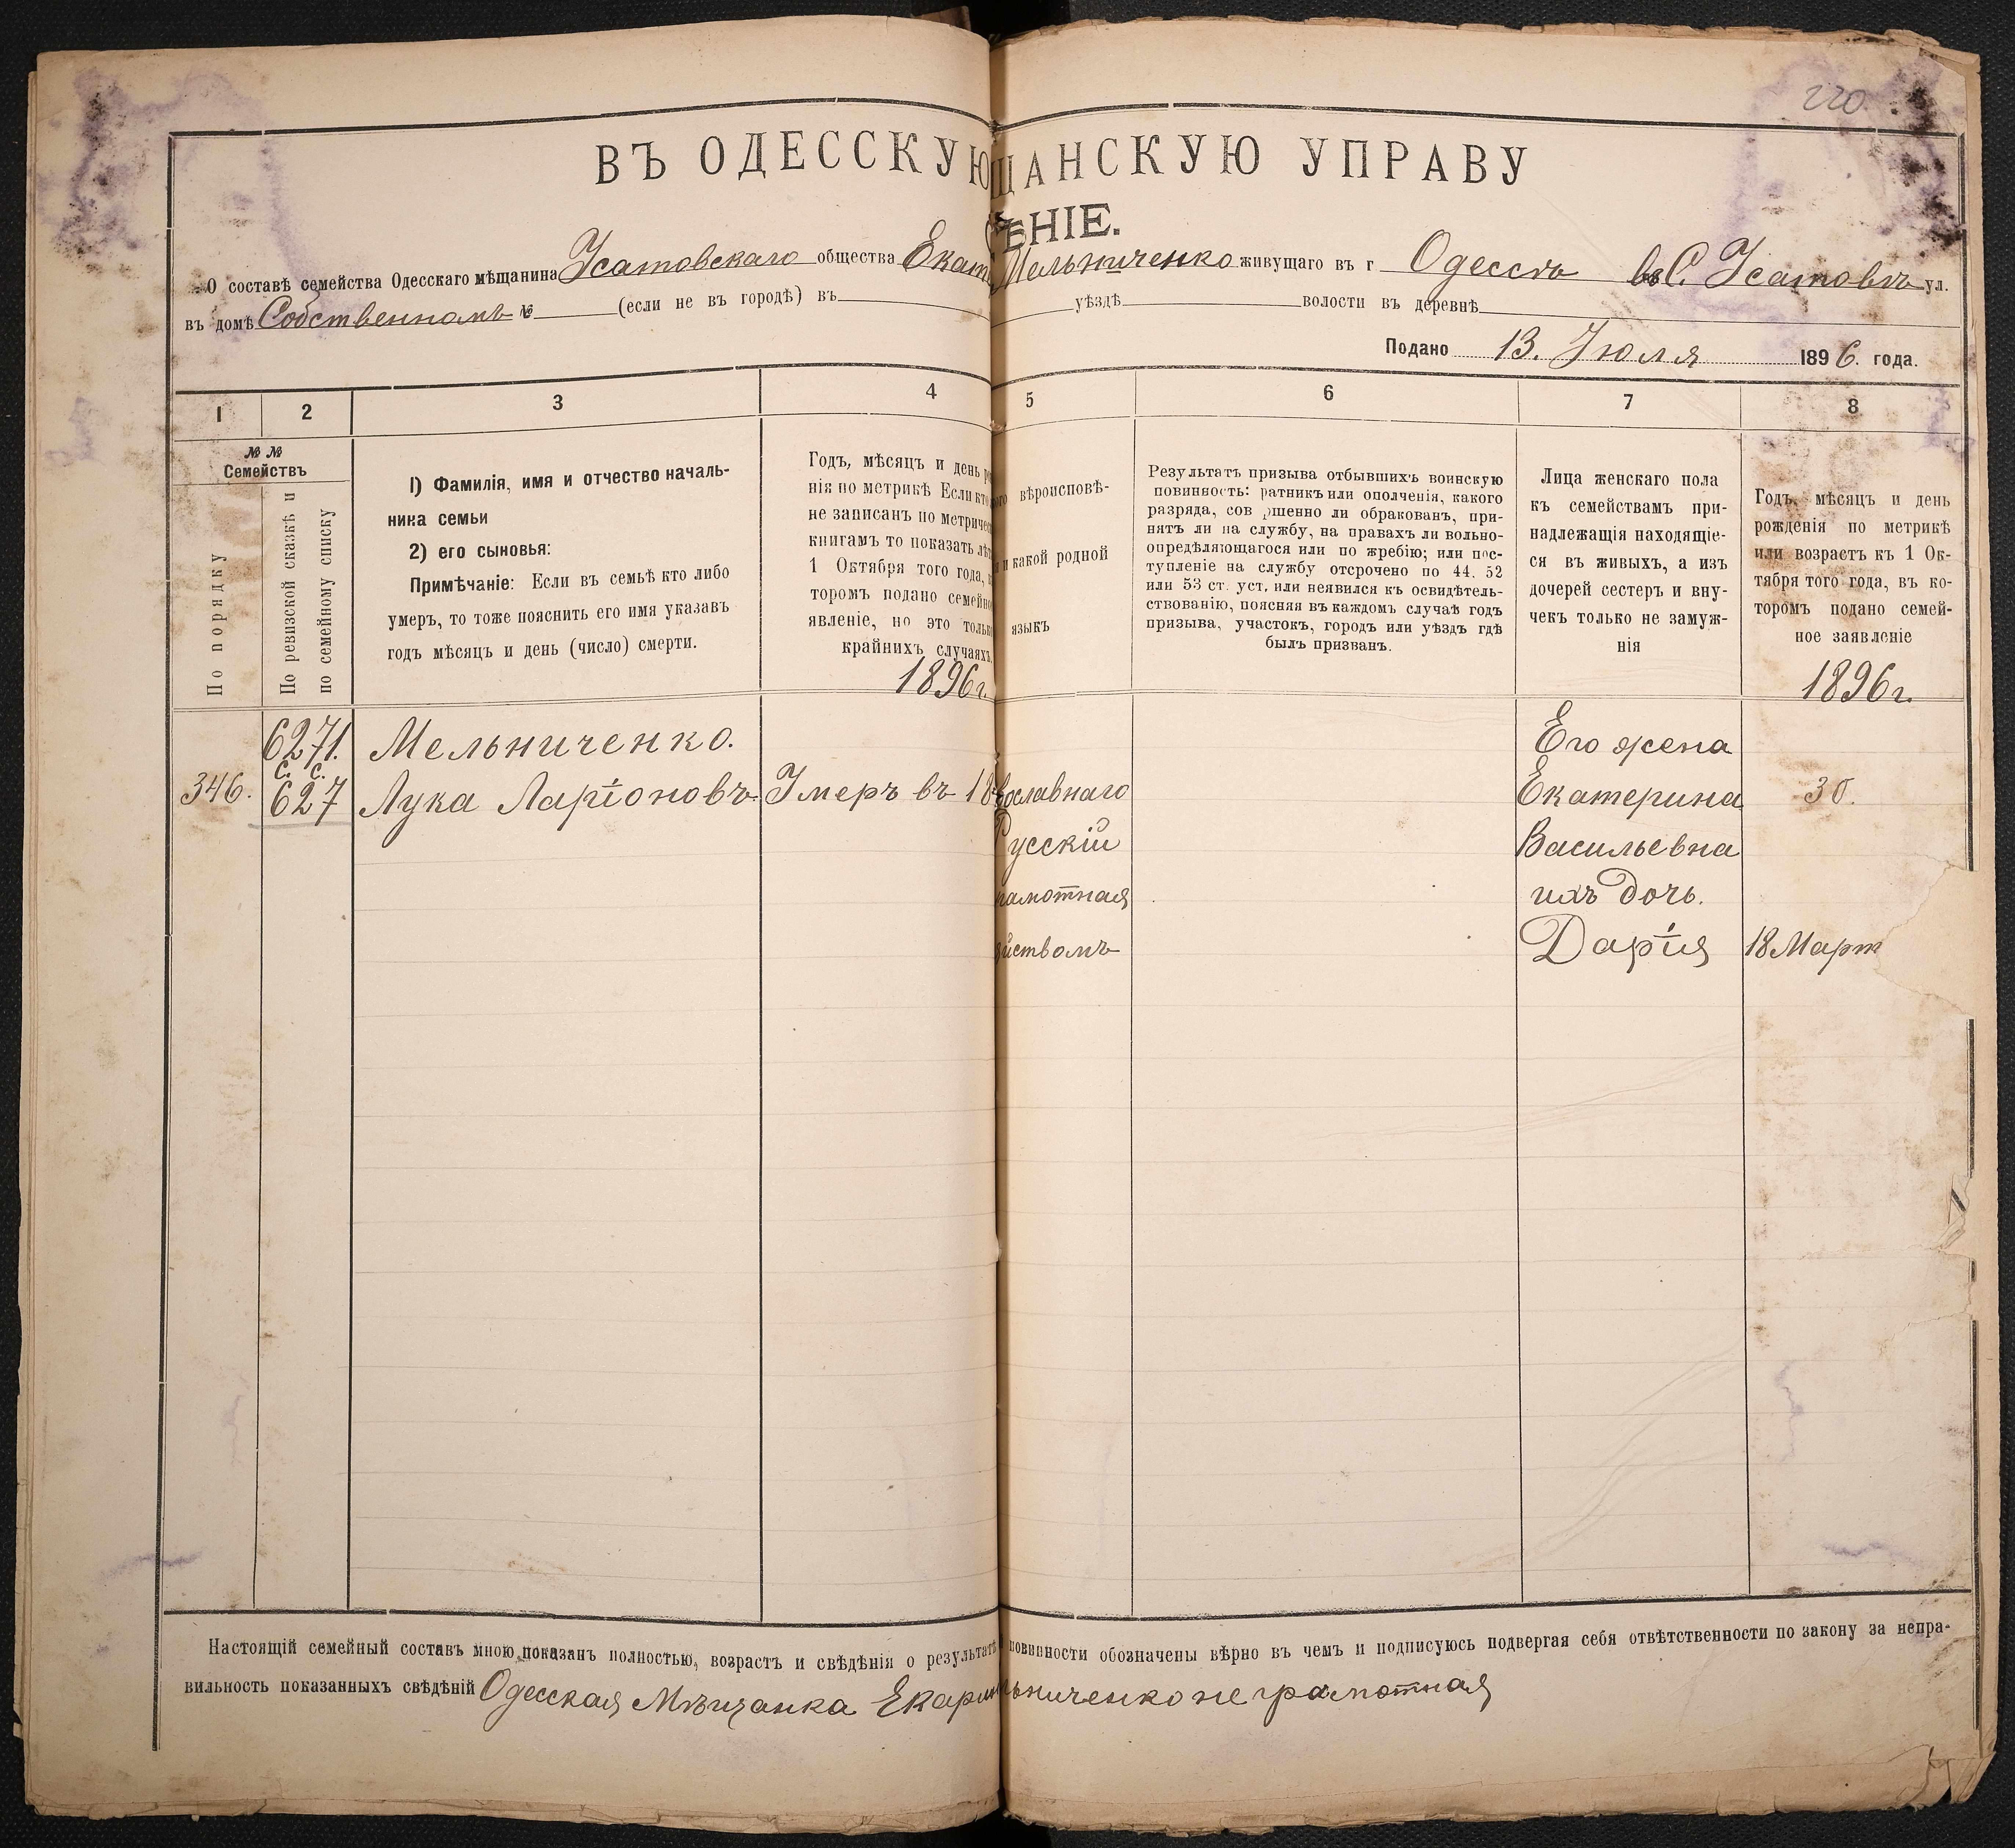 220.
ВЪ ОДЕССКУЮ ЩАНСКУЮ УПРАВУ
ЕНІЕ.
О составѣ семейства Одесскаго мѣщанина Усатовскаго общества Екат Мельниченко живущаго въ г Одессѣ въ С. Усатовъ ул.
въ домѣ Собственномъ № (если не въ городѣ) въ уѣздѣ волости въ деревнѣ
Подано 13. Июля 1896. года.
1 2 3 4 5 6 7 8
№ №
Семействъ
По порядку
По ревизской сказкѣ и
по семейному списку
1) Фамилія, имя и отчество началь-
ника семьи
2) его сыновья:
Примѣчаніе: Если въ семьѣ кто либо
умеръ, то тоже пояснить его имя указавъ
годъ мѣсяцъ и день (число) смерти.
Годъ, мѣсяцъ и день
нія по метрикѣ Если кто
не записанъ по метричес
книгамъ то показать лѣт
1 Октября того года,
торомъ подано семейно
явленіе, но это только
крайнихъ случаяхъ.
1896г.
вѣроисповѣ-
и какой родной
языкъ
Результатъ призыва отбывшихъ воинскую
повинность: ратникъ или ополченія, какого
разряда, сов ршенно ли обракованъ, при-
нятъ ли на службу, на правахъ ли вольно-
опредѣляющагося или по жребію; или пос-
тупленіе на службу отсрочено по 44. 52
или 53 ст. уст, или неявился къ освидѣтель-
ствованію, поясняя въ каждомъ случаѣ годъ
призыва, участокъ, городъ или уѣздъ гдѣ
былъ призванъ.
Лица женскаго пола
къ семействамъ при-
надлежащія находящіе-
ся въ живыхъ, а изъ
дочерей сестеръ и вну-
чекъ только не замуж-
нія
Годъ, мѣсяцъ и день
рожденія по метрикѣ
или возрастъ къ 1 Ок-
тября того года, въ ко-
торомъ подано семей-
ное заявленіе
1896г.
6271. Мельниченко. Его жена
с. с.
346. 627 Лука Ларіоновъ. Умеръ въ 18 вославнаго Екатерина 30.
Русскій Васильевна
рамотная ихъ дочь.
йствомъ Дарія 18 Март
Настоящій семейный составъ мною показанъ полностью, возрастъ и свѣдѣнія о результатѣ повинности обозначены вѣрно въ чемъ и подписуюсь подвергая себя отвѣтственности по закону за непра-
вильность показанныхъ свѣдѣній Одесская Мѣщанка Екари ьниченко не грамотная